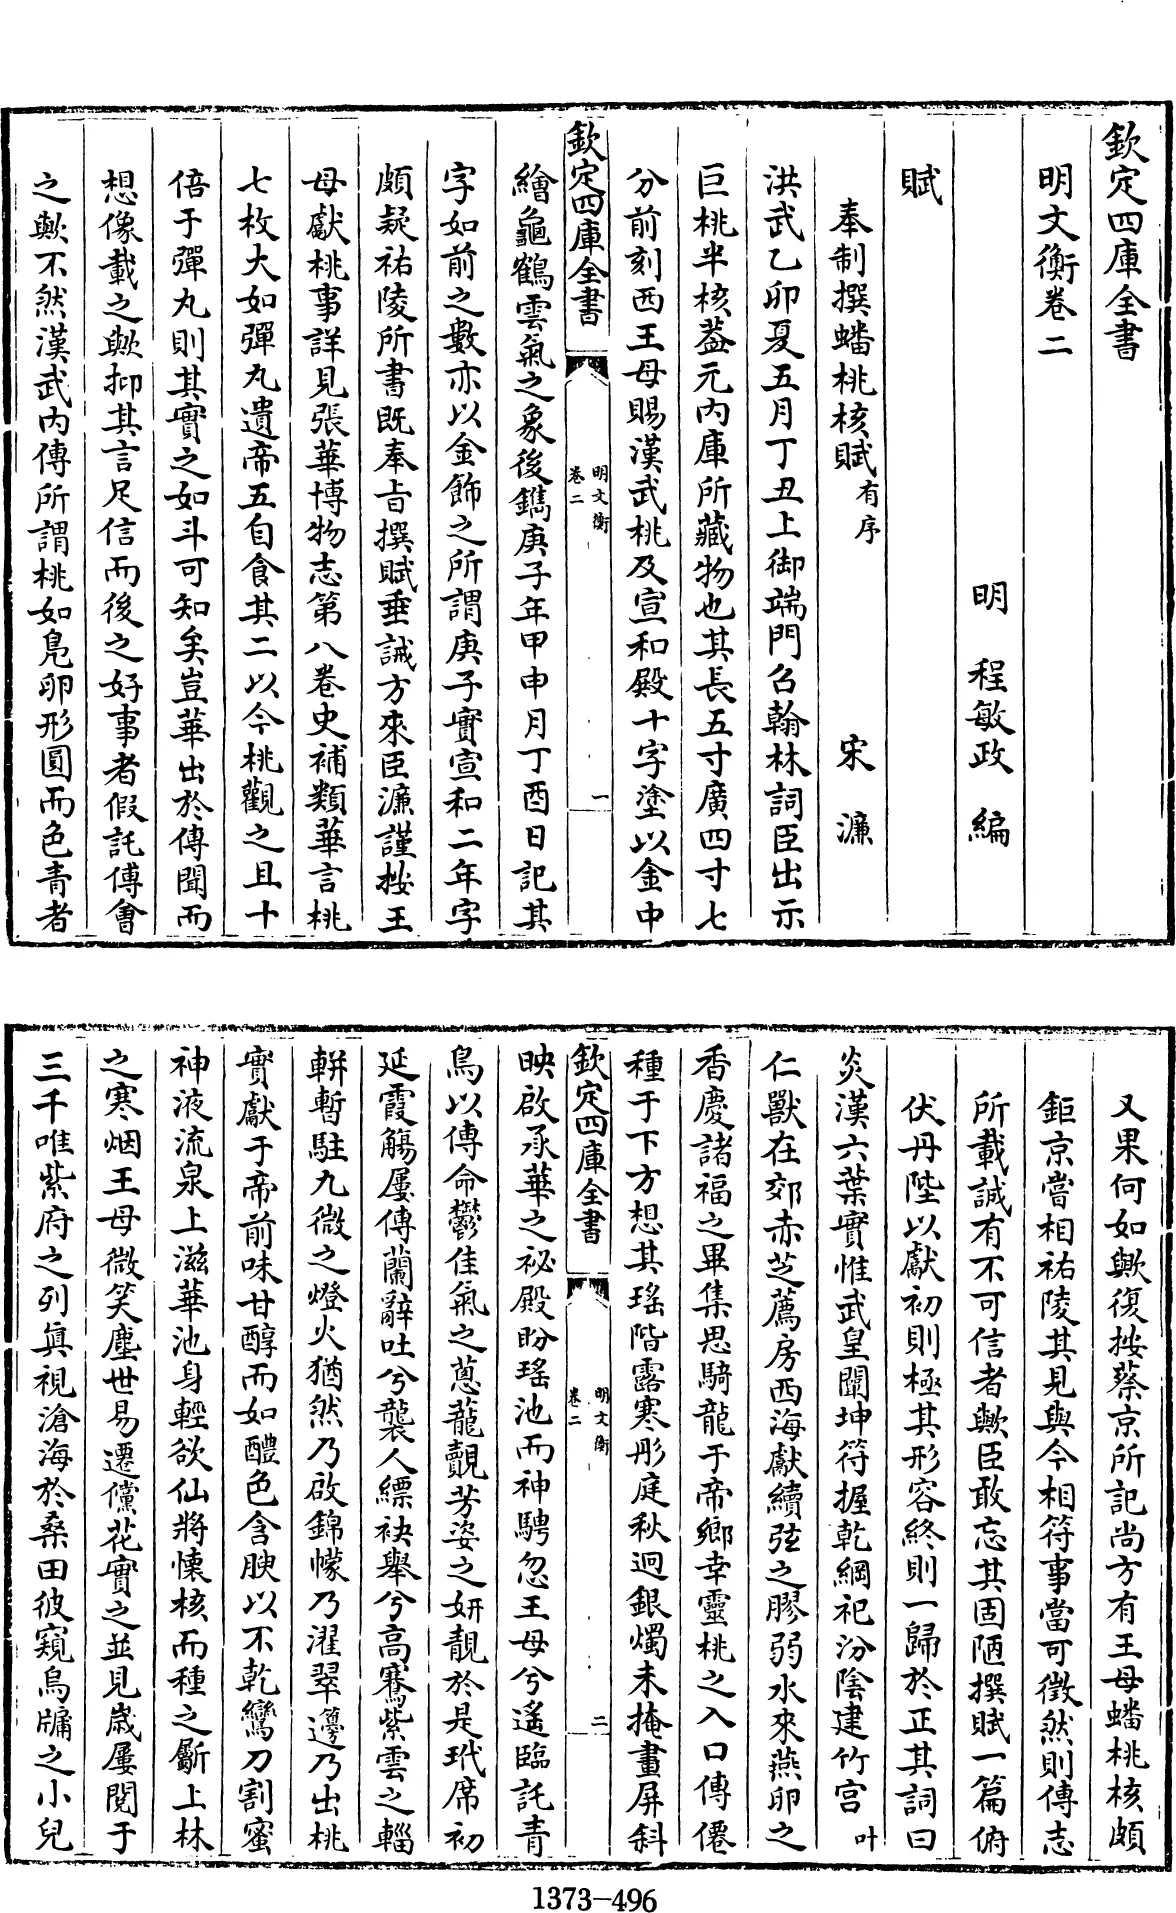 欽定四庫全書
明文衡卷二
明 程敏政 編
賦
奉制撰蟠桃核賦有序 宋濂
洪武乙卯夏五月丁丑上御端門召翰林詞臣出示
巨桃半核葢元内庫所藏物也其長五寸廣四寸七
分前刻西王母賜漢武桃及宣和殿十字塗以金中
欽定四庫全書
明文衡
卷二
一
繪龜鶴雲氣之象後鐫庚子年甲申月丁酉日記其
字如前之數亦以金飾之所謂庚子實宣和二年字
頗疑祐陵所書既奉㫖撰賦垂誡方來臣濂謹按王
母獻桃事詳見張華博物志第八卷史補類華言桃
七枚大如彈丸遺帝五自食其二以今桃觀之且十
倍于彈丸則其實之如斗可知矣豈華出於傳聞而
想像載之歟抑其言足信而後之好事者假託傅會
之歟不然漢武内傳所謂桃如鳬卵形圓而色青者
又果何如歟復按蔡京所記尚方有王母蟠桃核頗
鉅京嘗相祐陵其見與今相符事當可徴然則傳志
所載誠有不可信者歟臣敢忘其固陋撰賦一篇俯
伏丹陛以獻初則極其形容終則一歸於正其詞曰
炎漢六葉實惟武皇闡坤符握乾綱祀汾陰建竹宫叶
仁獸在郊赤芝薦房西海獻續弦之膠弱水來燕卵之
香慶諸福之畢集思騎龍于帝鄉幸靈桃之入口傳僊
種于下方想其瑤階露寒彤庭秋迥銀燭未掩畫屏斜
欽定四庫全書
明文衡
卷二
二
映啟承華之祕殿盼瑤池而神騁忽王母兮遙臨託青
鳥以傳命鬱佳氣之蔥蘢覿芳姿之妍靚於是玳席初
延霞觴屢傳蘭辭吐兮襲人縹袂舉兮高騫紫雲之輜
軿暫駐九微之燈火猶然乃啟錦幪乃濯翠籩乃出桃
實獻于帝前味甘醇而如醴色含腴以不乾鸞刀割蜜
神液流泉上滋華池身輕欲仙將懷核而種之斸上林
之寒烟王母微笑塵世易遷儻花實之並見嵗屢閱于
三千唯紫府之列眞視滄海於桑田彼窺烏牖之小兒
1373-496